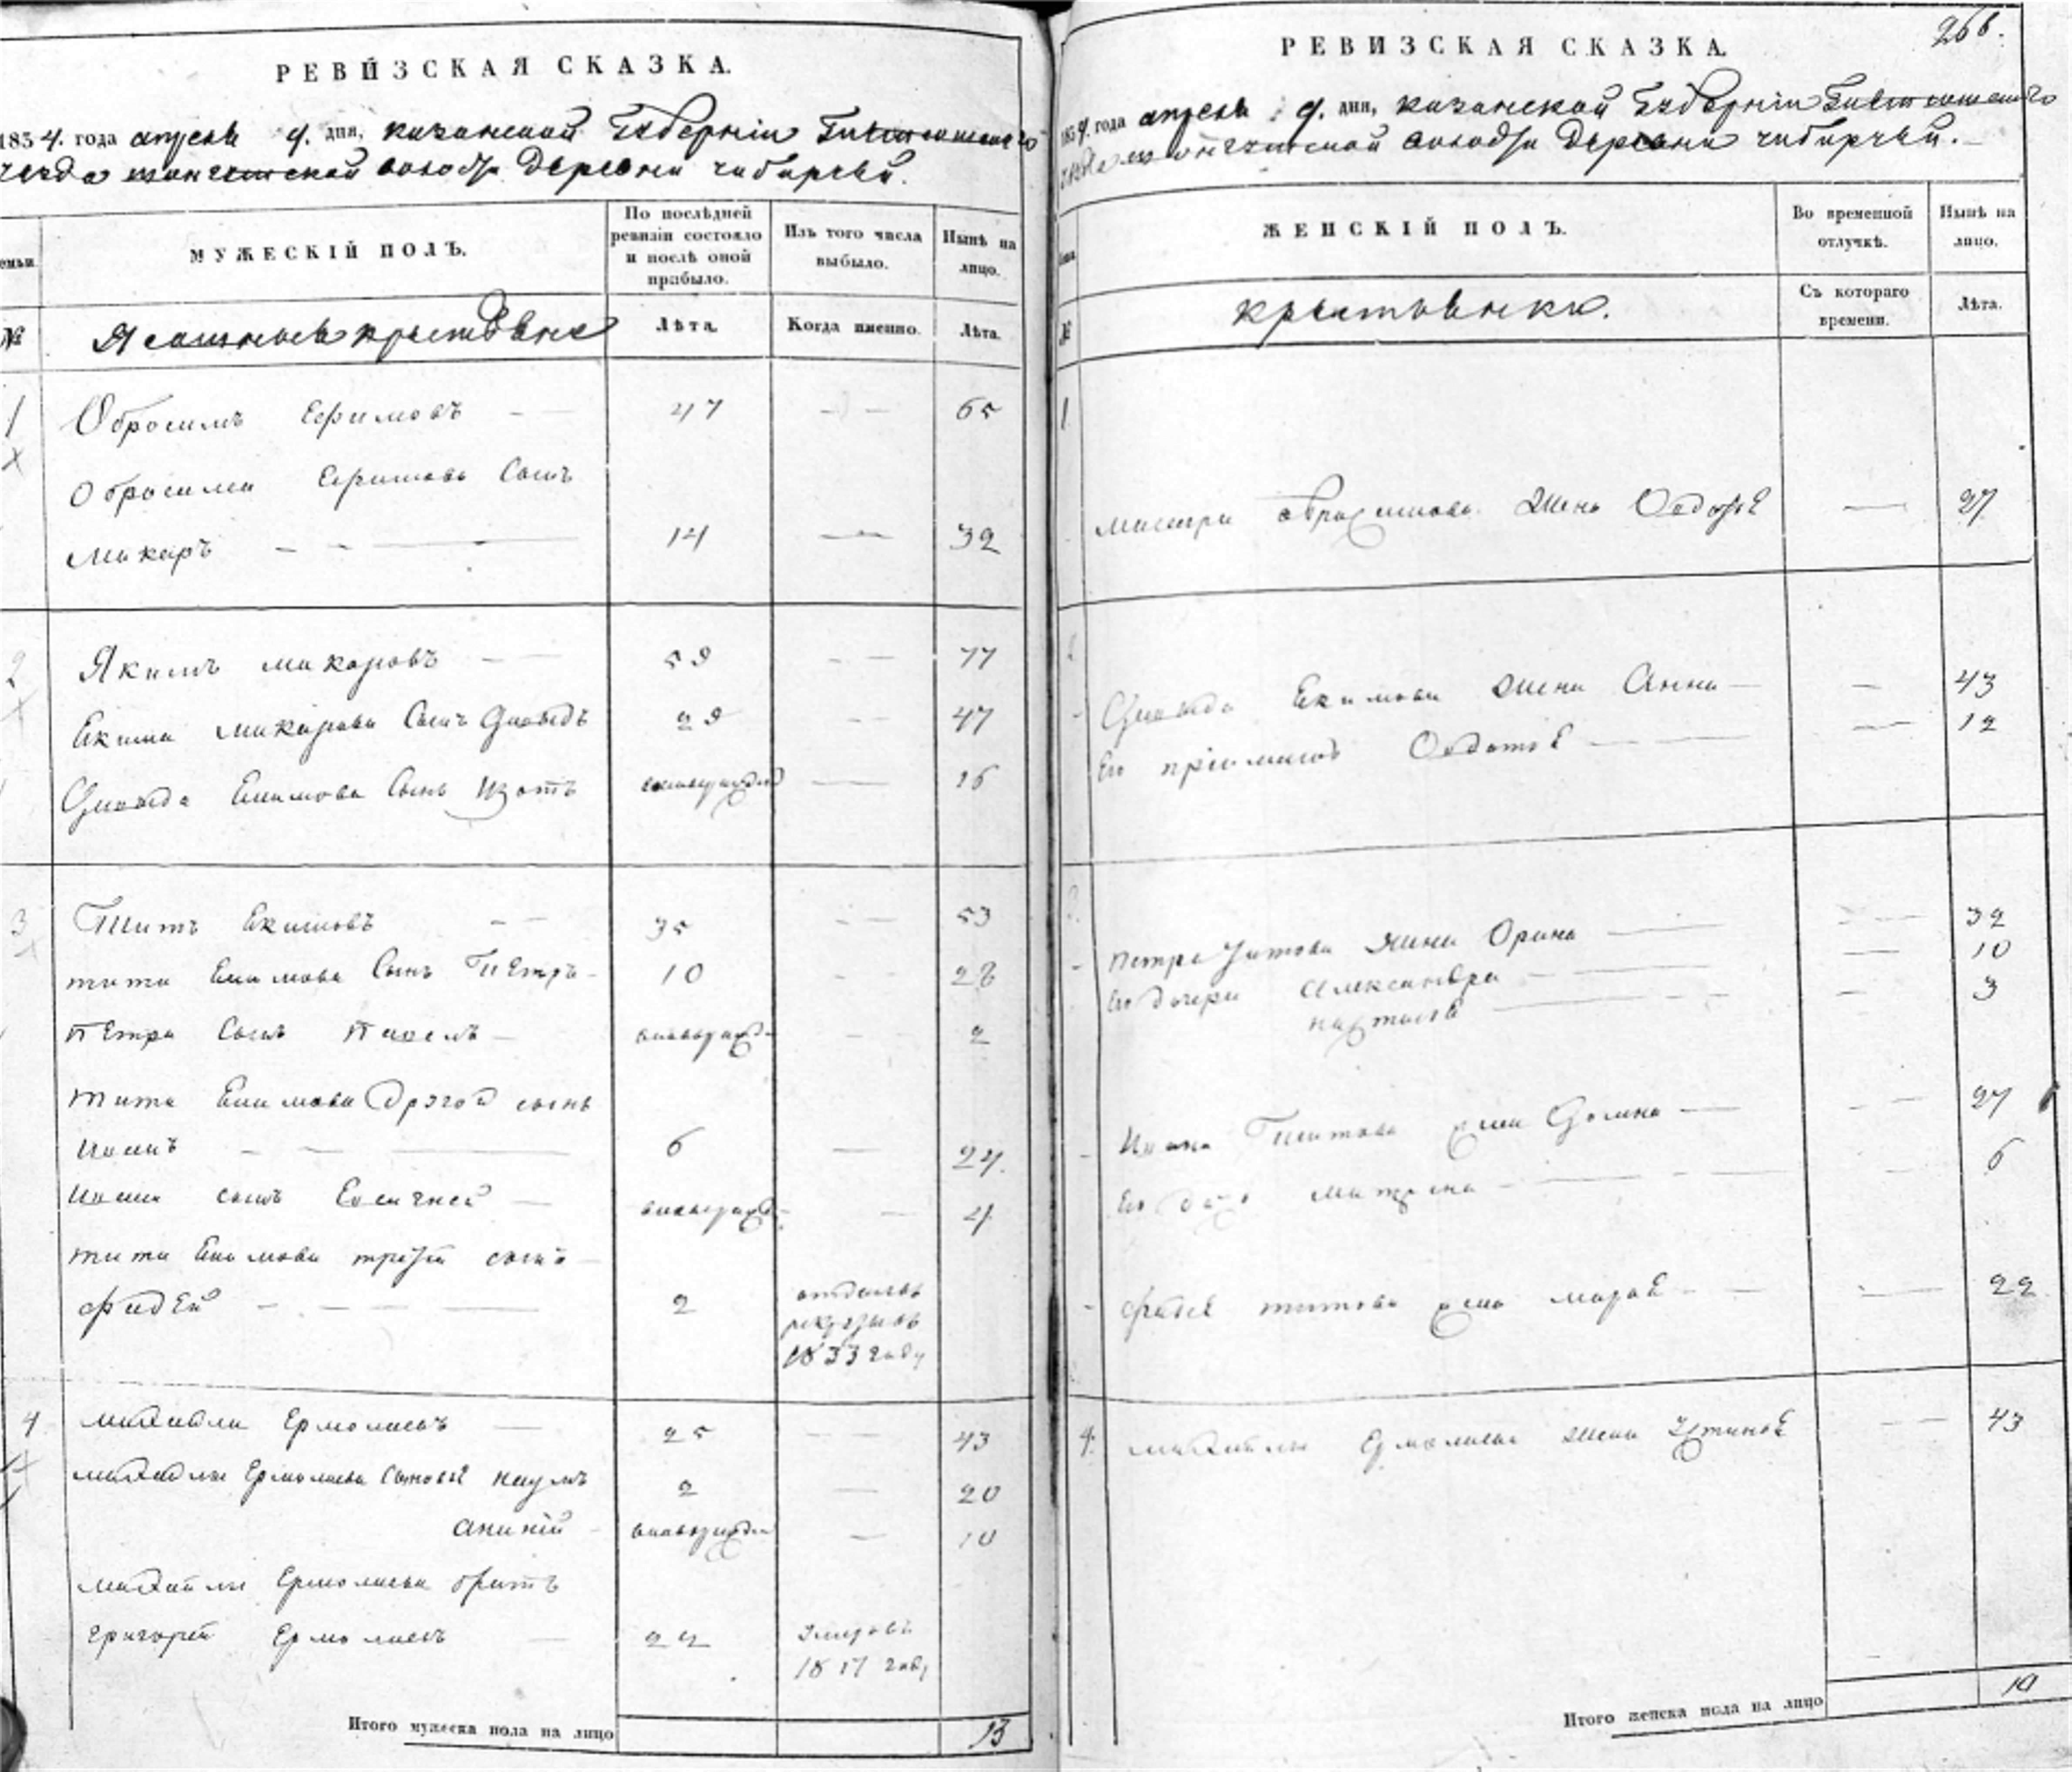 РЕВИЗСКАЯ СКАЗКА.
1834. года апреля 9. дня, казанской Губернии
уезда волости деревни чибирчей.
семьи.
МУЖЕСКІЙ ПОЛЪ.
По послѣдней ревизіи состояло и послѣ оной прибыло.
Изъ того числа выбыло.
Нынѣ на лицо.
№
Ясашныя крестьяне
Лѣта.
Когда именно.
Лѣта.
1 Обросимъ Ефимовъ 47 65
Обросима Ефимова Сынъ
макаръ 14 32
2 Якимъ макаровъ 59 77
Екима макарова Сынъ 29 47
Екимова Сынъ Изотъ 16
3 Титъ Екимовъ 35 53
тита Екимова Сынъ Петръ 10 28
Петра Сынъ Павелъ 2
тита Екимова Другой сынъ
6 24.
сынъ Евсигней 4
тита Екимова третий сынъ
Фадей 2 отданъ в рекруты в 1833 году
4 михайла Ермолаевъ 25 43
михайлы Ермолаева Сыновья наумъ 2 20
ананий 10
михайлы Ермолаева братъ
григорей Ермолаевъ 22 умеръ в 1817 году
Итого мужеска пола на лицо 13
266.
РЕВИЗСКАЯ СКАЗКА.
1834. года апреля 9. дня, казанской Губернии
уезда волости деревни чибирчей.
ЖЕНСКІЙ ПОЛЪ.
Во временной отлучкѣ.
Нынѣ на лицо.
№
крестьянки.
Съ котораго времени.
Лѣта.
1
макара абросимова жена Овдотья 27
Екимова жена Анна 43
Овдотья 12
Петра Титова жена Орина 32
Ево дочери Александра 10
настасья 3
Титова жена 27
Ево дочь матрена 6
Фадея титова жена марья 22
4. михайлы Ермолаева жена Устинья 43
Итого женска пола на лицо 10